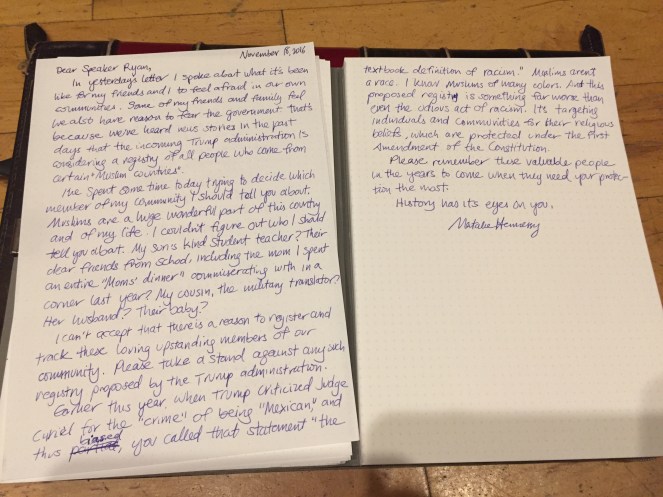 November 18, 2016
Dear Speaker Ryan,
In yesterday's letter I spoke about what it's been
like for my friends and I to feel afraid in our own
communities. Some of my friends and family feel
we also have reason to fear the government. that's
because we've heard news stories in the past
days that the incoming Trump administration is
considering a registry of all people who come from
certain "Muslim countries".
I've spent some time today trying to decide which
member of my community I should tell you about.
Muslims are a huge wonderful part of this country
and of my life. I couldn't figure out who I should
tell you about. My son's kind student teacher? Their
dear friends from school, including the mom I spent
an entire "Moms' dinner" commiserating with in a
corner last year? My cousin, the military translator?
Her husband? Their baby?
I can't accept that there is a reason to register and
track these loving upstanding members of our
community. Please take a stand against any such
registry proposed by the Trump administration.
Earlier this year, when Trump criticized Judge
Curiel for the "crime" of being "Mexican," and
thus biased, you called that statement "the
textbook definition of racism." Muslims aren't
a race. I know Muslims of many colors. And this
proposed registry is something far more than
even the odious act of racism. Its targeting
individuals and communities for their religious
beliefs, which are protected under the First
Amendment of the Constitution.
Please remember these valuable people
in the years to come when they need your protec-
tion the most.
History has its eyes on you.
Natalie Hennessy